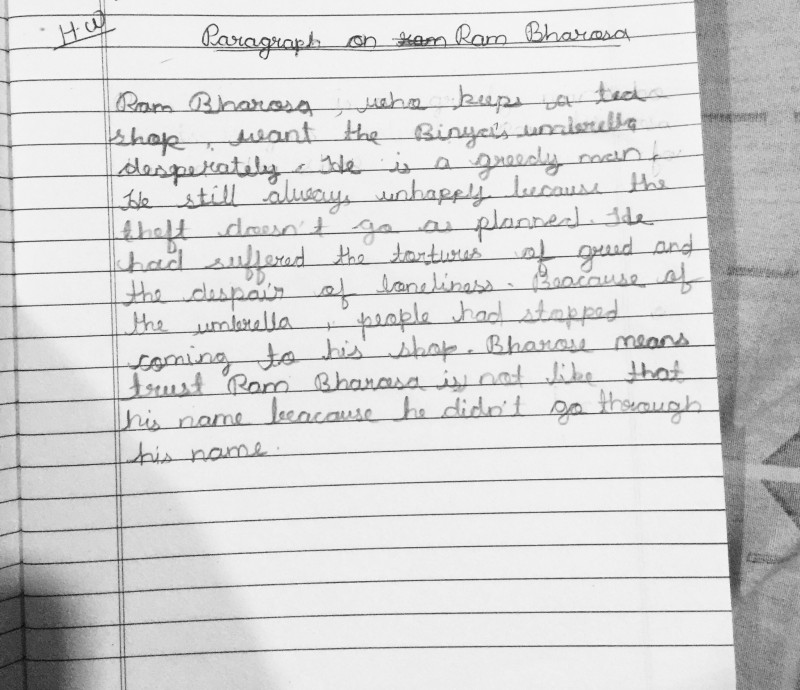 H.W
Paragraph on Ram Bharosa
Ram Bharosa, who keeps a tea
shop, want the Binya's umbrella
desperately. He is a greedy man
He still always unhappy because the
theft doesn't go as planned. He
had suffered the tortures of greed and
the despair of loneliness. Beacause of
the umbrella, people had stopped
coming to his shop. Bharose means
trust Ram Bharosa is not like that
his name beacause he didn't go through
his name.